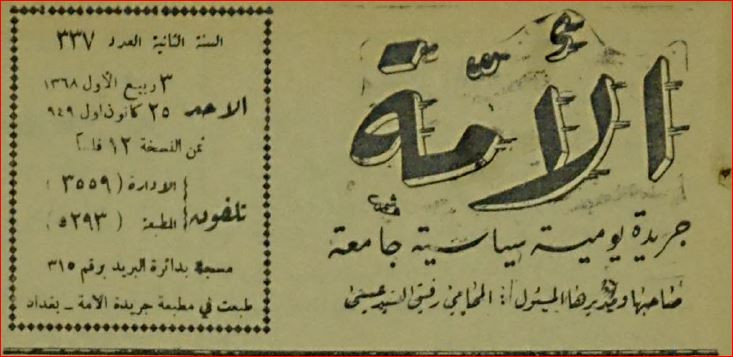 الأمة
جريدة يومية سياسية جامعة
صاحبها ومديرها المسئول: المحامي رفيق السيد عيسى
السنة الثانية العدد ٣٣٧
٣ ربيع الاول ١٣٦٨
الاحد ٢٥ كانون اول ٩٤٩
ثمن النسخة ١٢ فلساً
تلفون
الادارة (٣٥٥٩)
المطبعة (٥٢٩٣)
مسجلة بدائرة البريد برقم ٣١٥
طبعت في مطبعة جريدة الامة - بغداد